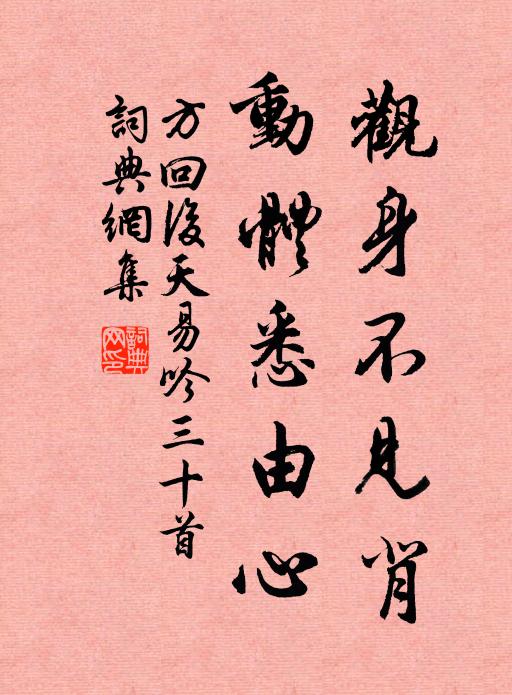 觀身不見背
動體悉由心
方回後天易吟三十首
詞典網集
詞典網印